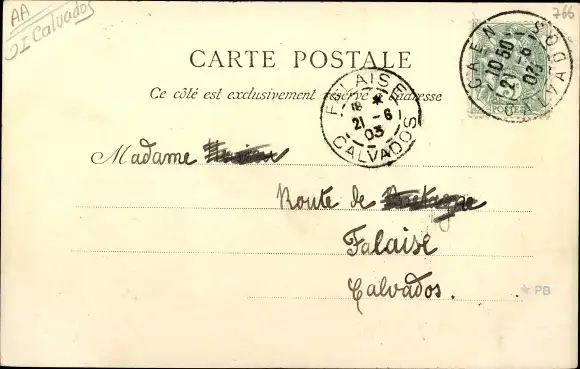 AA
Calvados
766
CARTE POSTALE
Ce côté est exclusivement réservé à l'adresse
CAEN CALVADOS
10 50
21 - 6
03
FALAISE
18 *
21 - 6
03
CALVADOS
POSTES
Madame
Route de Bretagne
Falaise
Calvados.
* PB